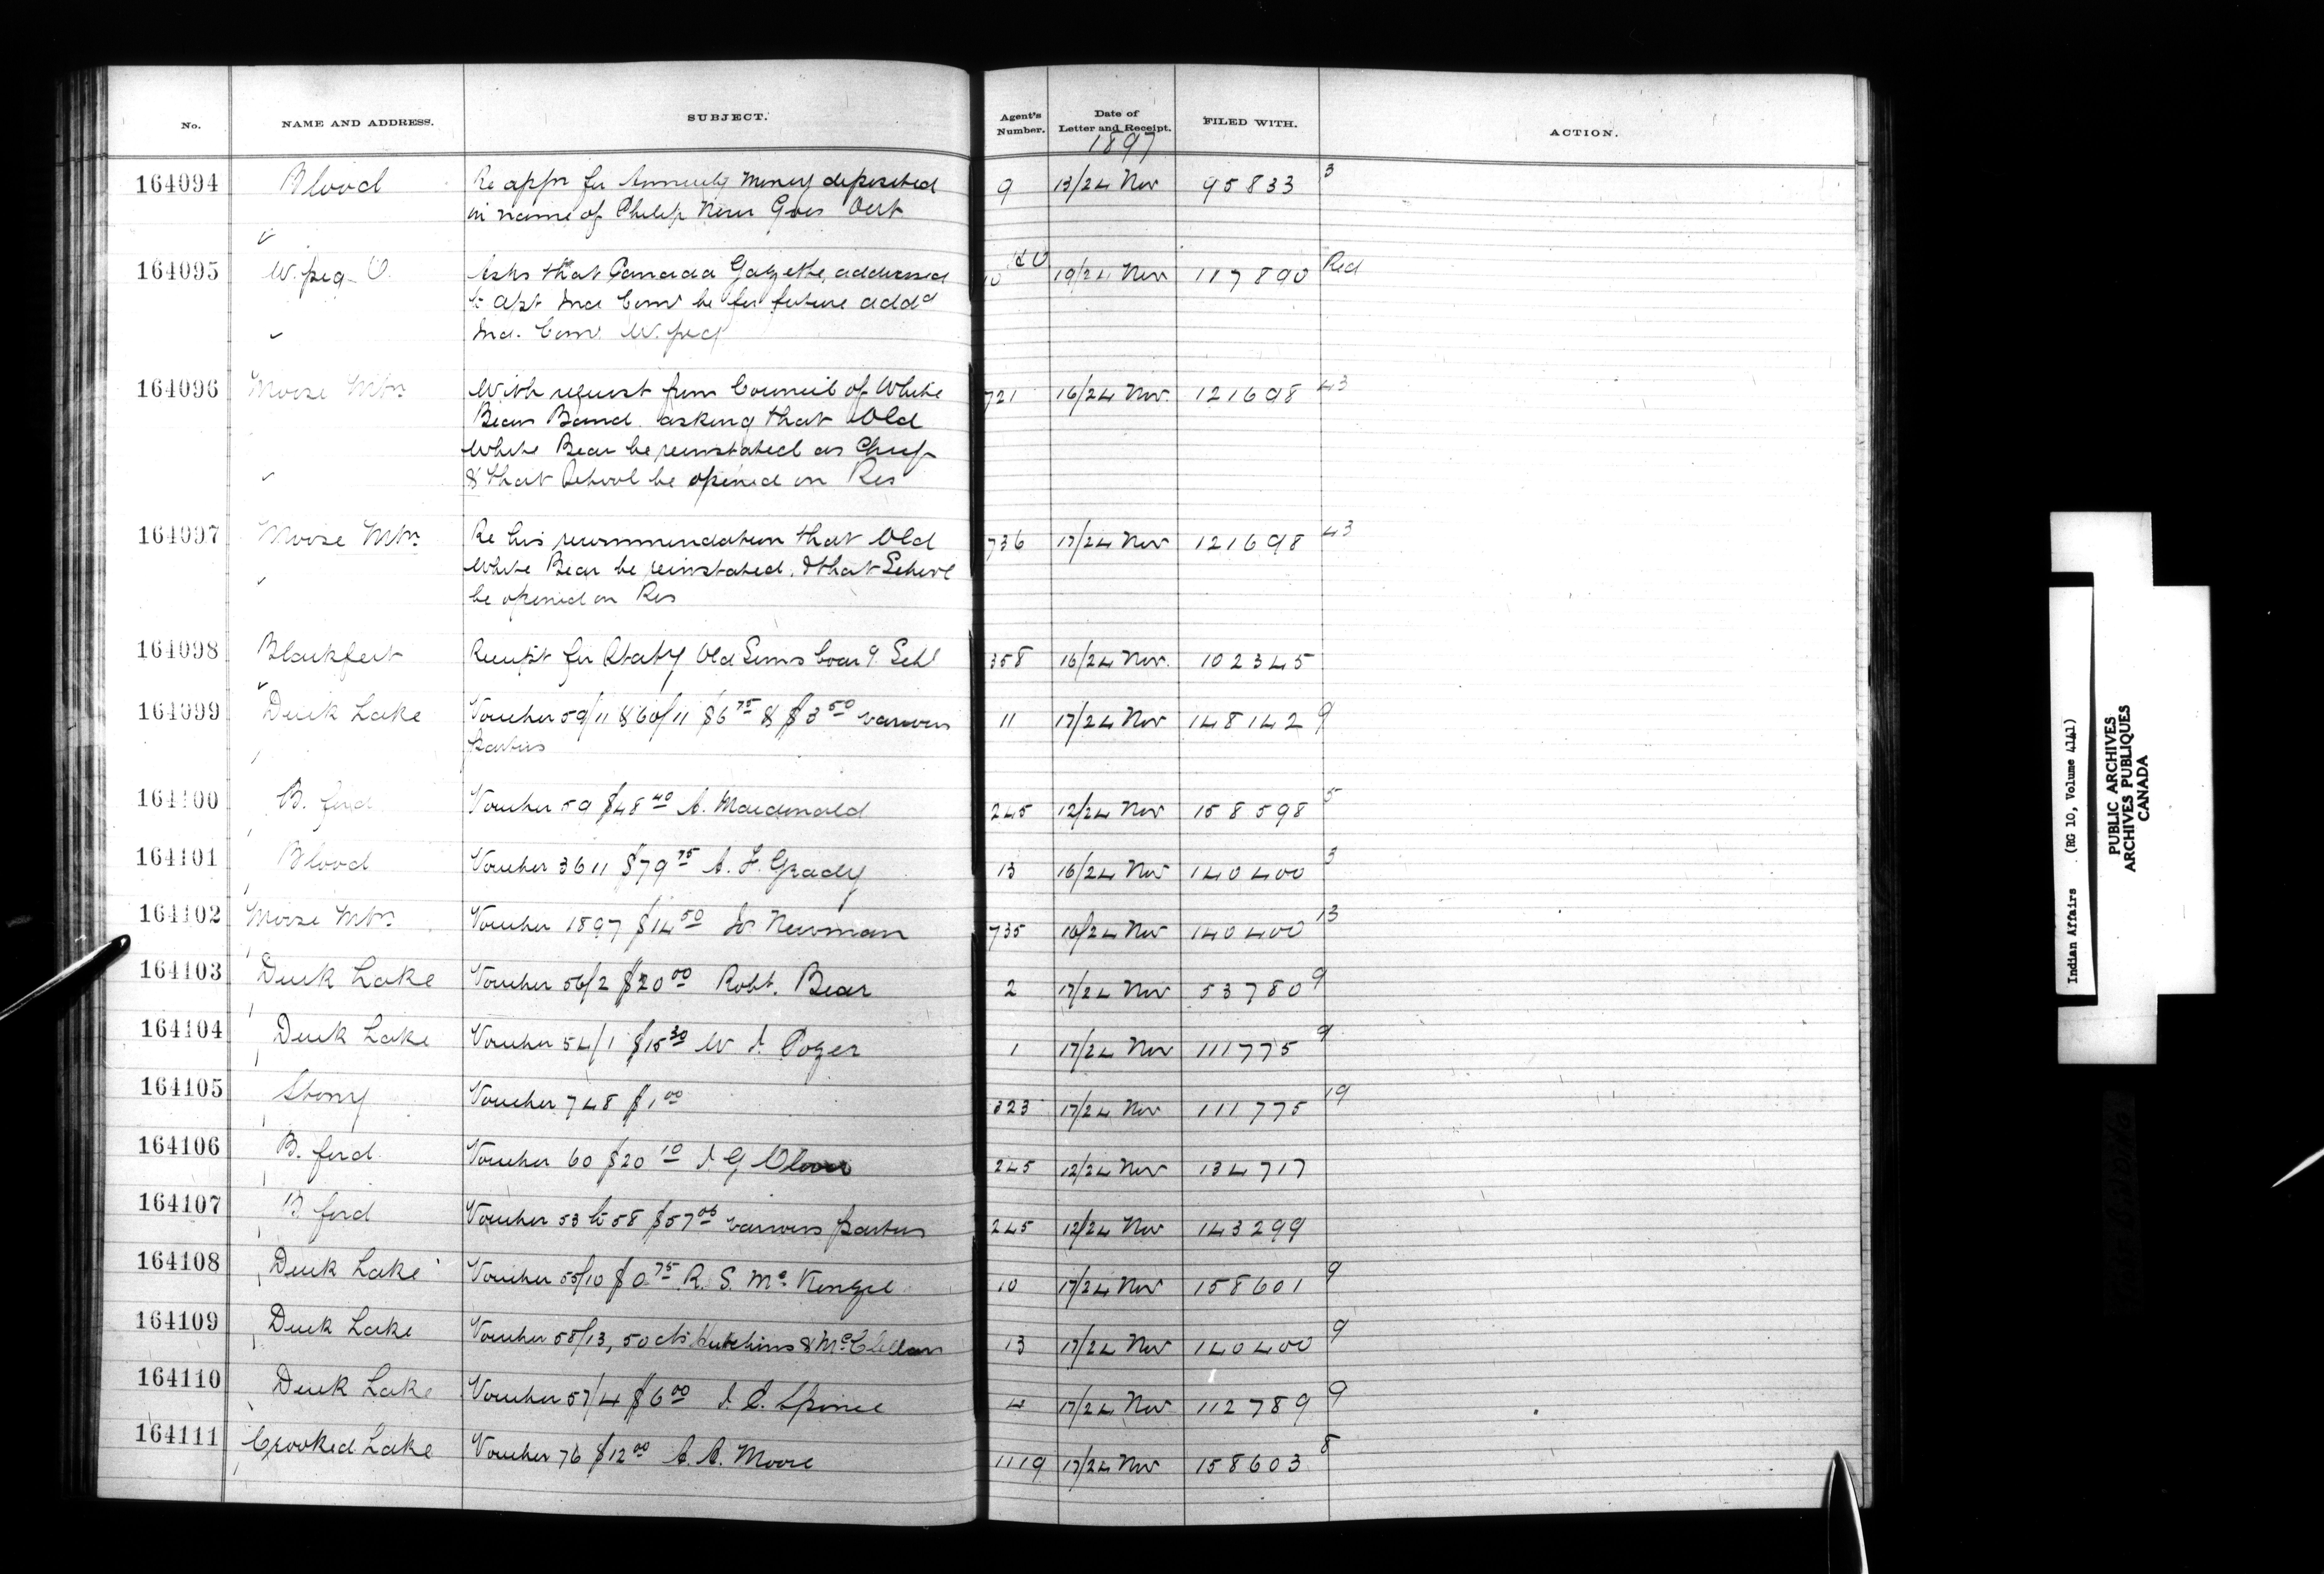 No. NAME AND ADDRESS. SUBJECT. Agent's Number. Date of Letter and Receipt. FILED WITH. ACTION.
1897
164094 Blood Re appn for Annuity money deposited 9 13/24 Nov 95833 3
in name of Philip Goes Out
164095 W.peg O. Asks that Canada Gazette, addressed 19/24 Nov 117890 Red
to Asst Ind Comr be for future addd
Ind. Comr W.peg
164096 Moose Mtn With request from Council of White 721 16/24 Nov. 121698 43
Bear Band asking that Old
White Bear be reinstated as Chief
& that School be opened on Res
164097 Moose Mtn Re his recommendation that Old 736 17/24 Nov 121698 43
White Bear be reinstated, & that School
be opened on Res
164098 Blackfeet Receipt for Old Suns Boardg Schl 358 16/24 Nov. 102345
164099 Duck Lake Voucher 59/11 & 60/11 $6 75 & $3 50 various 11 17/24 Nov 148142 9
parties
164100 B. ford Voucher 59 $48 40 A. Macdonald 245 12/24 Nov 158598 5
164101 Blood Voucher 3611 $79 75 A. F. Grady 13 16/24 Nov 140400 3
164102 Moose Mtn Voucher 1897 $14 50 Newman 735 16/24 Nov 140400 13
164103 Duck Lake Voucher 56/2 $20 00 Robt. Bear 2 17/24 Nov 53780 9
164104 Duck Lake Voucher 54/1 $15 30 W 1 17/24 Nov 111775 9
164105 Stony Voucher 748 $1 00 323 17/24 Nov 111775 19
164106 B. ford Voucher 60 $20 10 J G Oliver 245 12/24 Nov 134717
164107 B ford Voucher 53 to 58 $57 05 various parties 245 12/24 Nov 143299
164108 Duck Lake Voucher 55/10 $0 75 R. S. McKenzie 10 17/24 Nov 158601 9
164109 Duck Lake Voucher 58/13, 50 cts Hutchins & McClellan 13 17/24 Nov 140400 9
164110 Duck Lake Voucher 57/4 $6 00 Spence 4 17/24 Nov 112789 9
164111 Crooked Lake Voucher 76 $12 00 A. A. Moore 1119 17/24 Nov 158603 8
Indian Affairs (RG 10, Volume 4141)
PUBLIC ARCHIVES
ARCHIVES PUBLIQUES
CANADA